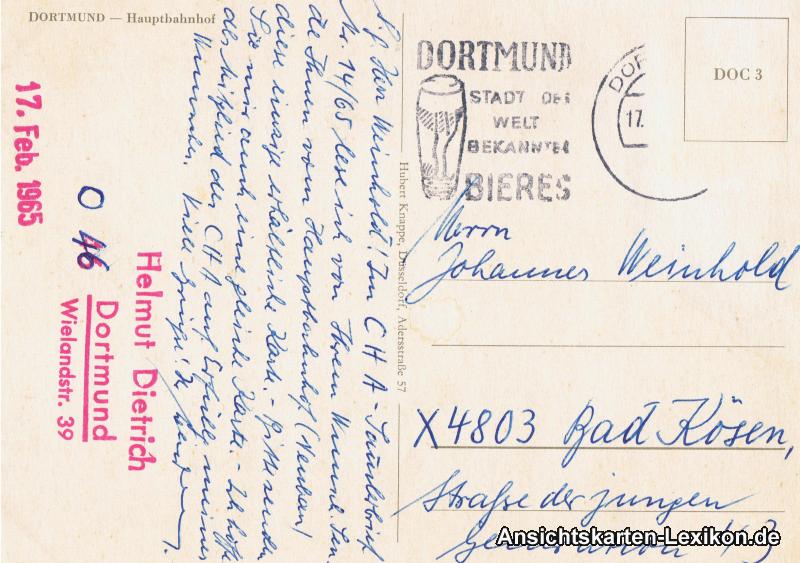 DORTMUND — Hauptbahnhof
17. Feb. 1965
O 46
Helmut Dietrich
Dortmund
Wielandstr. 39
S. g. Herr Weinhold! Im C H A - Sammlerbrief
Nr. 14/65 lese ich von Ihrem Wunsch. Sen-
de Ihnen vom Hauptbahnhof (Neubau)
diese einzige erhältliche Karte. - Bitte senden
Sie mir auch eine gleiche Karte. - Ich hoffe
als Mitglied der C H A auf Erfüllg meines
Wunsches. Viele Grüße! H.
Hubert Knappe, Düsseldorf, Adersstraße 57
DORTMUND
STADT DES
WELT
BEKANNTEN
BIERES
DOR
17.
DOC 3
Herrn
Johannes Weinhold
X4803 Bad Kösen,
Straße der jungen
Generation 43
Ansichtskarten-Lexikon.de